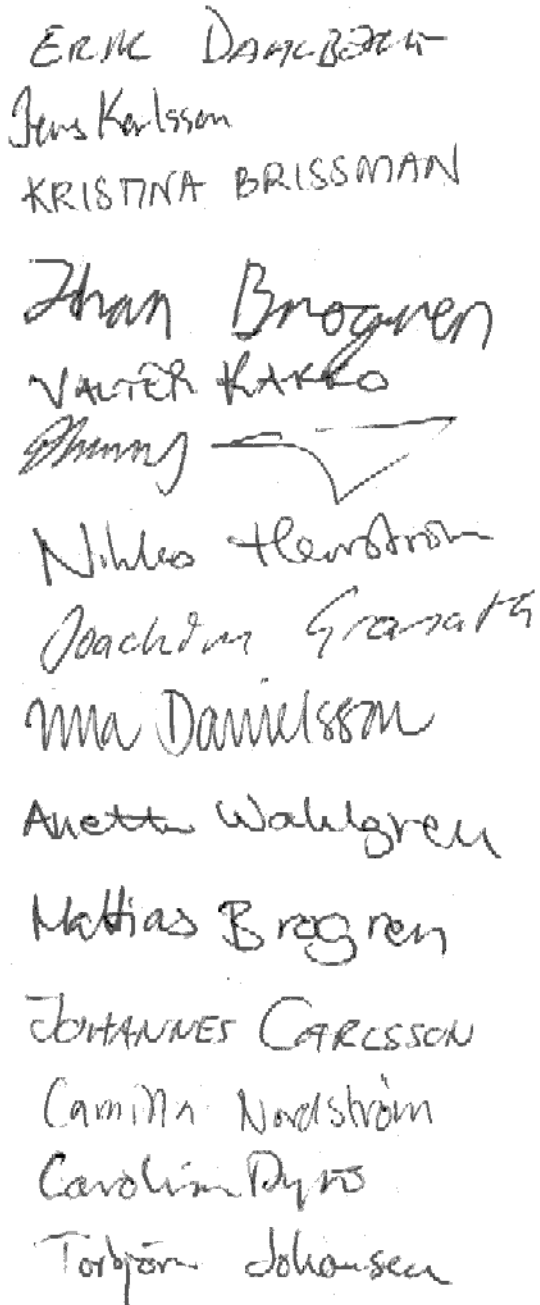 ERIK DAHLBERG
Jens Karlsson
KRISTINA BRISSMAN
Johan Brogren
VALTER KAKKO
Joachim Granath
Danielsson
Anette Wahlgren
Mattias Brogren
JOHANNES CARLSSON
Camilla Nordström
Carolina
Torbjörn Johansen